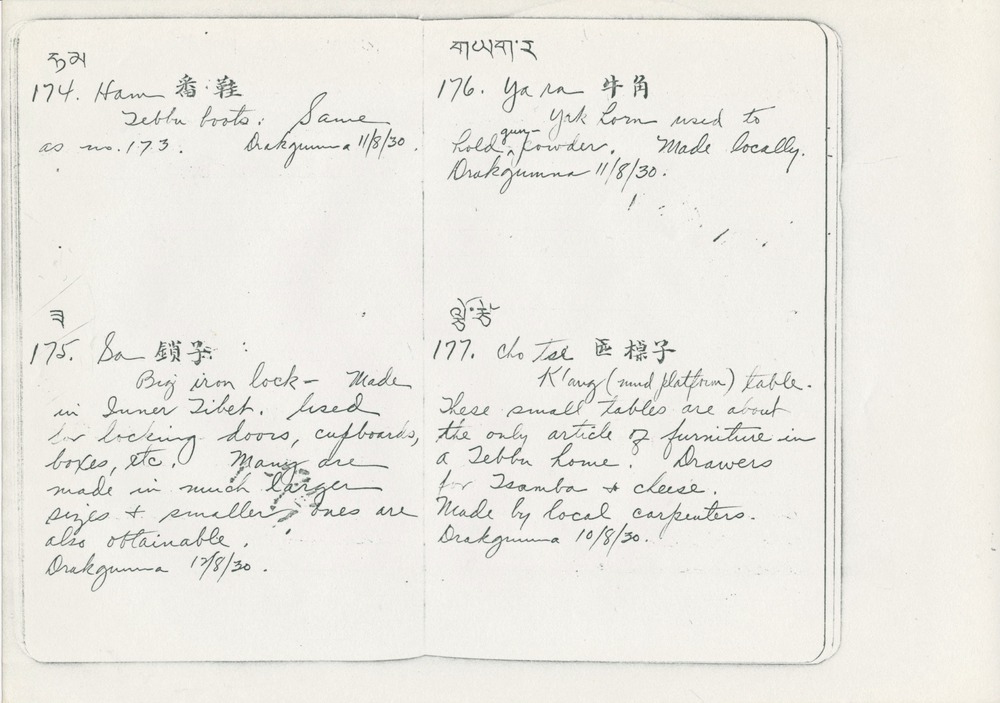 174. Ham 番鞋
Tebbu boots. Same
as no. 173. Drakgumna 11/8/30.
175. Sa 鎖子
Big iron lock — Made
in Inner Tibet. Used
for locking doors, cupboards,
boxes, etc. Many are
made in much larger
sizes & smaller ones are
also obtainable.
Drakgumna 12/8/30.
གཡག་ར
176. Ya ra 牛角
Yak horn used to
hold gun-powder. Made locally.
Drakgumna 11/8/30.
177. Cho Tse 匟槕子
K'ang (mud platform) table.
These small tables are about
the only article of furniture in
a Tebbu home. Drawers
for Tsamba & cheese.
Made by local carpenters.
Drakgumna 10/8/30.